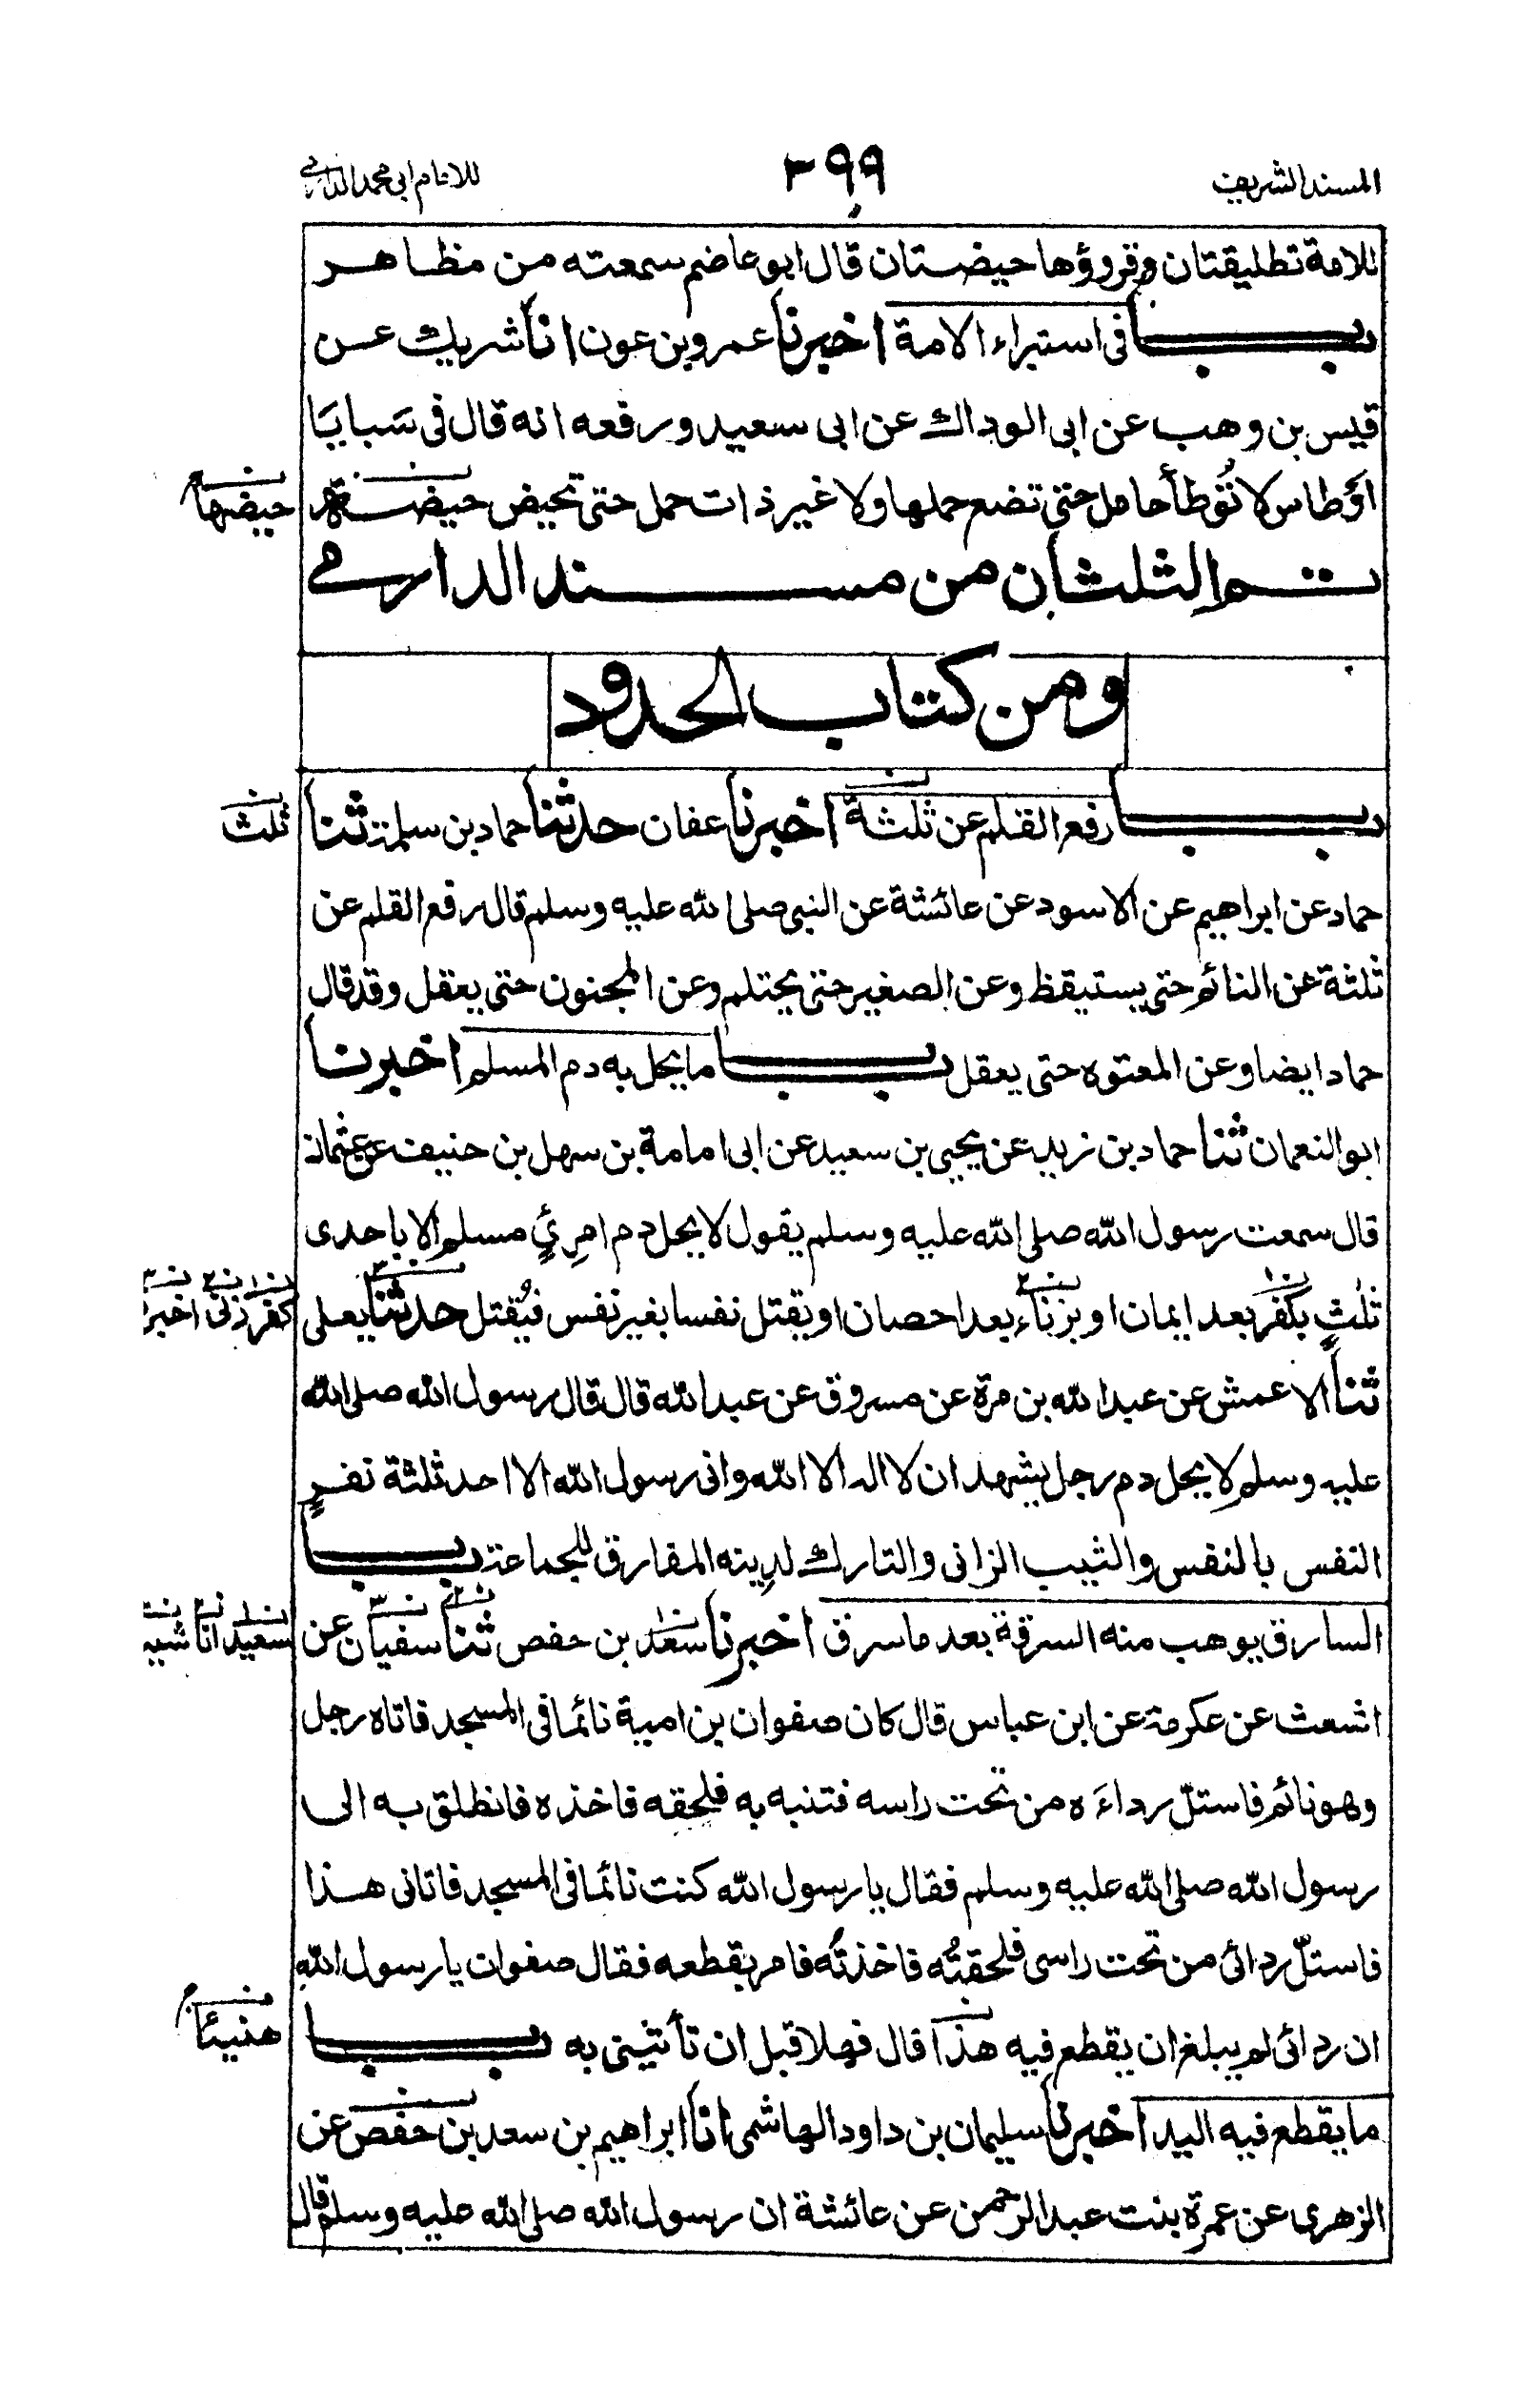 المسند الشريف ٢٩٩ للامام ابى محمد الدارمى
للامة تطليقتان وقروؤها حيضتان قال ابو عاصم سمعته من مظاهر
باب فى استبراء الامة اخبرنا عمرو بن عون انا شريك عن
قيس بن وهب عن ابى الوداك عن ابى سعيد ورفعه انه قال فى سَبايَا
اَوطاس لا تُوطأ حامل حتى تضع حملها ولا غير ذات حمل حتى تحيض حيضة
حيضها
تم الثلثان من مسند الدارمى
ومن كتاب الحدود
باب رفع القلم عن ثلثة اخبرنا عفان حدثنا حماد بن سلمة ثنا
ثلث
حماد عن ابراهيم عن الاسود عن عائشة عن النبى صلى الله عليه وسلم قال رفع القلم عن
ثلثة عن النائم حتى يستيقظ وعن الصغير حتى يحتلم وعن المجنون حتى يعقل وقد قال
حماد ايضا وعن المعتوه حتى يعقل باب ما يحل به دم المسلم اخبرنا
ابو النعمان ثنا حماد بن زيد عن يحيى بن سعيد عن ابى امامة بن سهل بن حنيف عن عثمان
قال سمعت رسول الله صلى الله عليه وسلم يقول لا يحل دم امرِئٍ مسلم الا باحدى
ثلٰثٍ بكفر بعد ايمان او بزناء بعد احصان او يقتل نفسا بغير نفس فيُقتل حدثنا يعلى
كفر زنى اخبرنا
ثنا الاعمش عن عبد الله بن مرة عن مسروق عن عبد الله قال قال رسول الله صلى الله
عليه وسلم لا يحل دم رجل يشهد ان لا اله الا الله وانى رسول الله الا احد ثلثة نفرٍ
النفس بالنفس والثيب الزانى والتارك لدينه المفارق للجماعة باب
السارق يوهب منه السرقة بعد ما سرق اخبرنا سعد بن حفص ثنا سفيان عن
سعيد انا شيبه
اشعث عن عكرمة عن ابن عباس قال كان صفوان بن امية نائما فى المسجد فاتاه رجل
وهو نائم فاستلّ رداءَه من تحت راسه فتنبه به فلحقه فاخذه فانطلق به الى
رسول الله صلى الله عليه وسلم فقال يا رسول الله كنت نائما فى المسجد فاتانى هذا
فاستلّ ردائى من تحت راسى فلحقتُه فاخذتُه فامر بقطعه فقال صفوان يا رسول الله
ان ردائى لم يبلغ ان يقطع فيه هذا قال فهلا قبل ان تأتينى به باب
هنيئا
ما يقطع فيه اليد اخبرنا سليمان بن داود الهاشمى انا ابراهيم بن سعد بن حفص عن
الزهرى عن عمرة بنت عبد الرحمن عن عائشة ان رسول الله صلى الله عليه وسلم قال